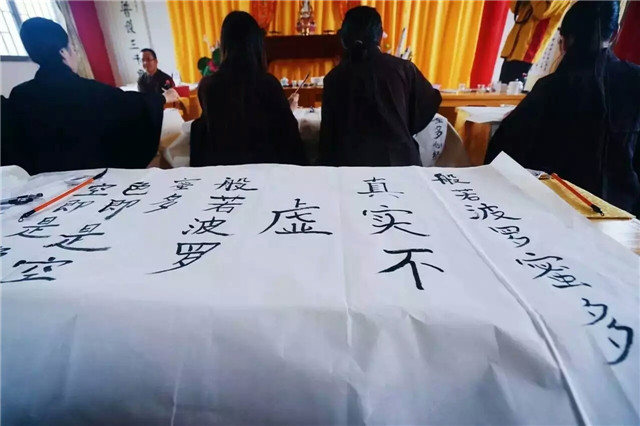 般若波罗蜜多
真实不
虚
般若波罗
蜜多
色即是空
空即是